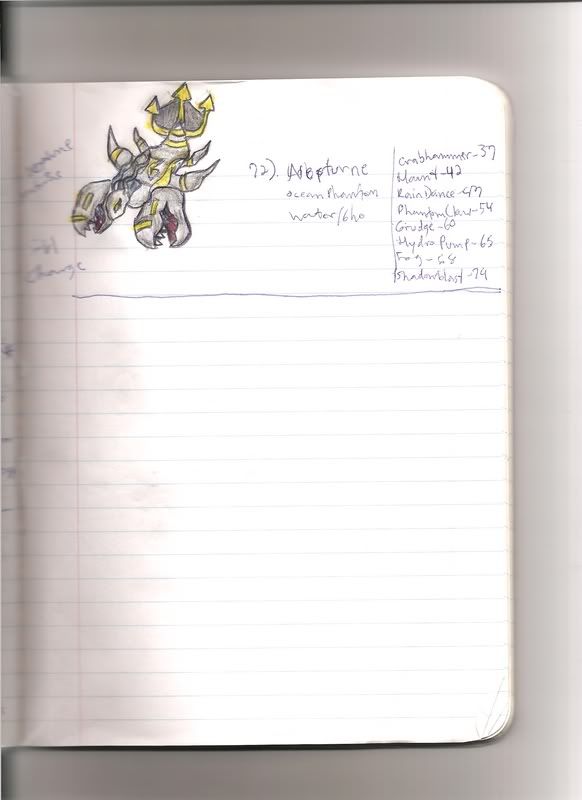 72).
ocean Phantom
water/Gho
Crabhammer-37
Haunt-42
Rain Dance-47
Phantom Claw-54
Grudge-60
Hydro Pump-65
Fog-68
Shadowblast-74
Change